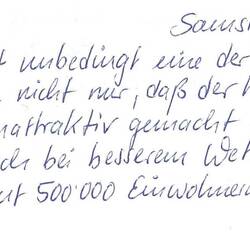 Samst
t unbedingt eine der
nicht nur, daß der
nattraktiv gemacht
ch bei besserem Wet
ut 500'000 Einwohner